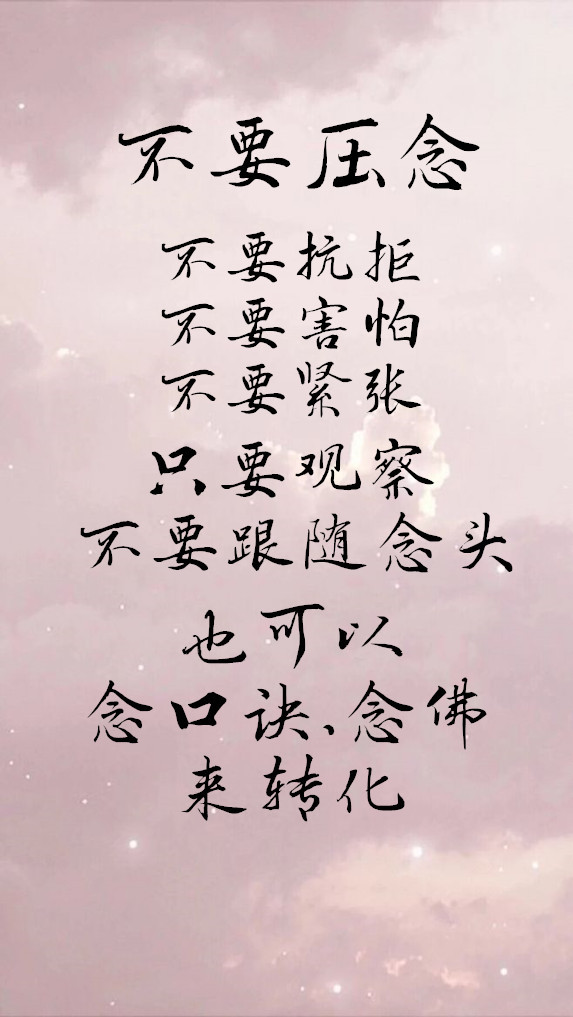 不要压念
不要抗拒
不要害怕
不要紧张
只要观察
不要跟随念头
也可以
念口诀、念佛
来转化